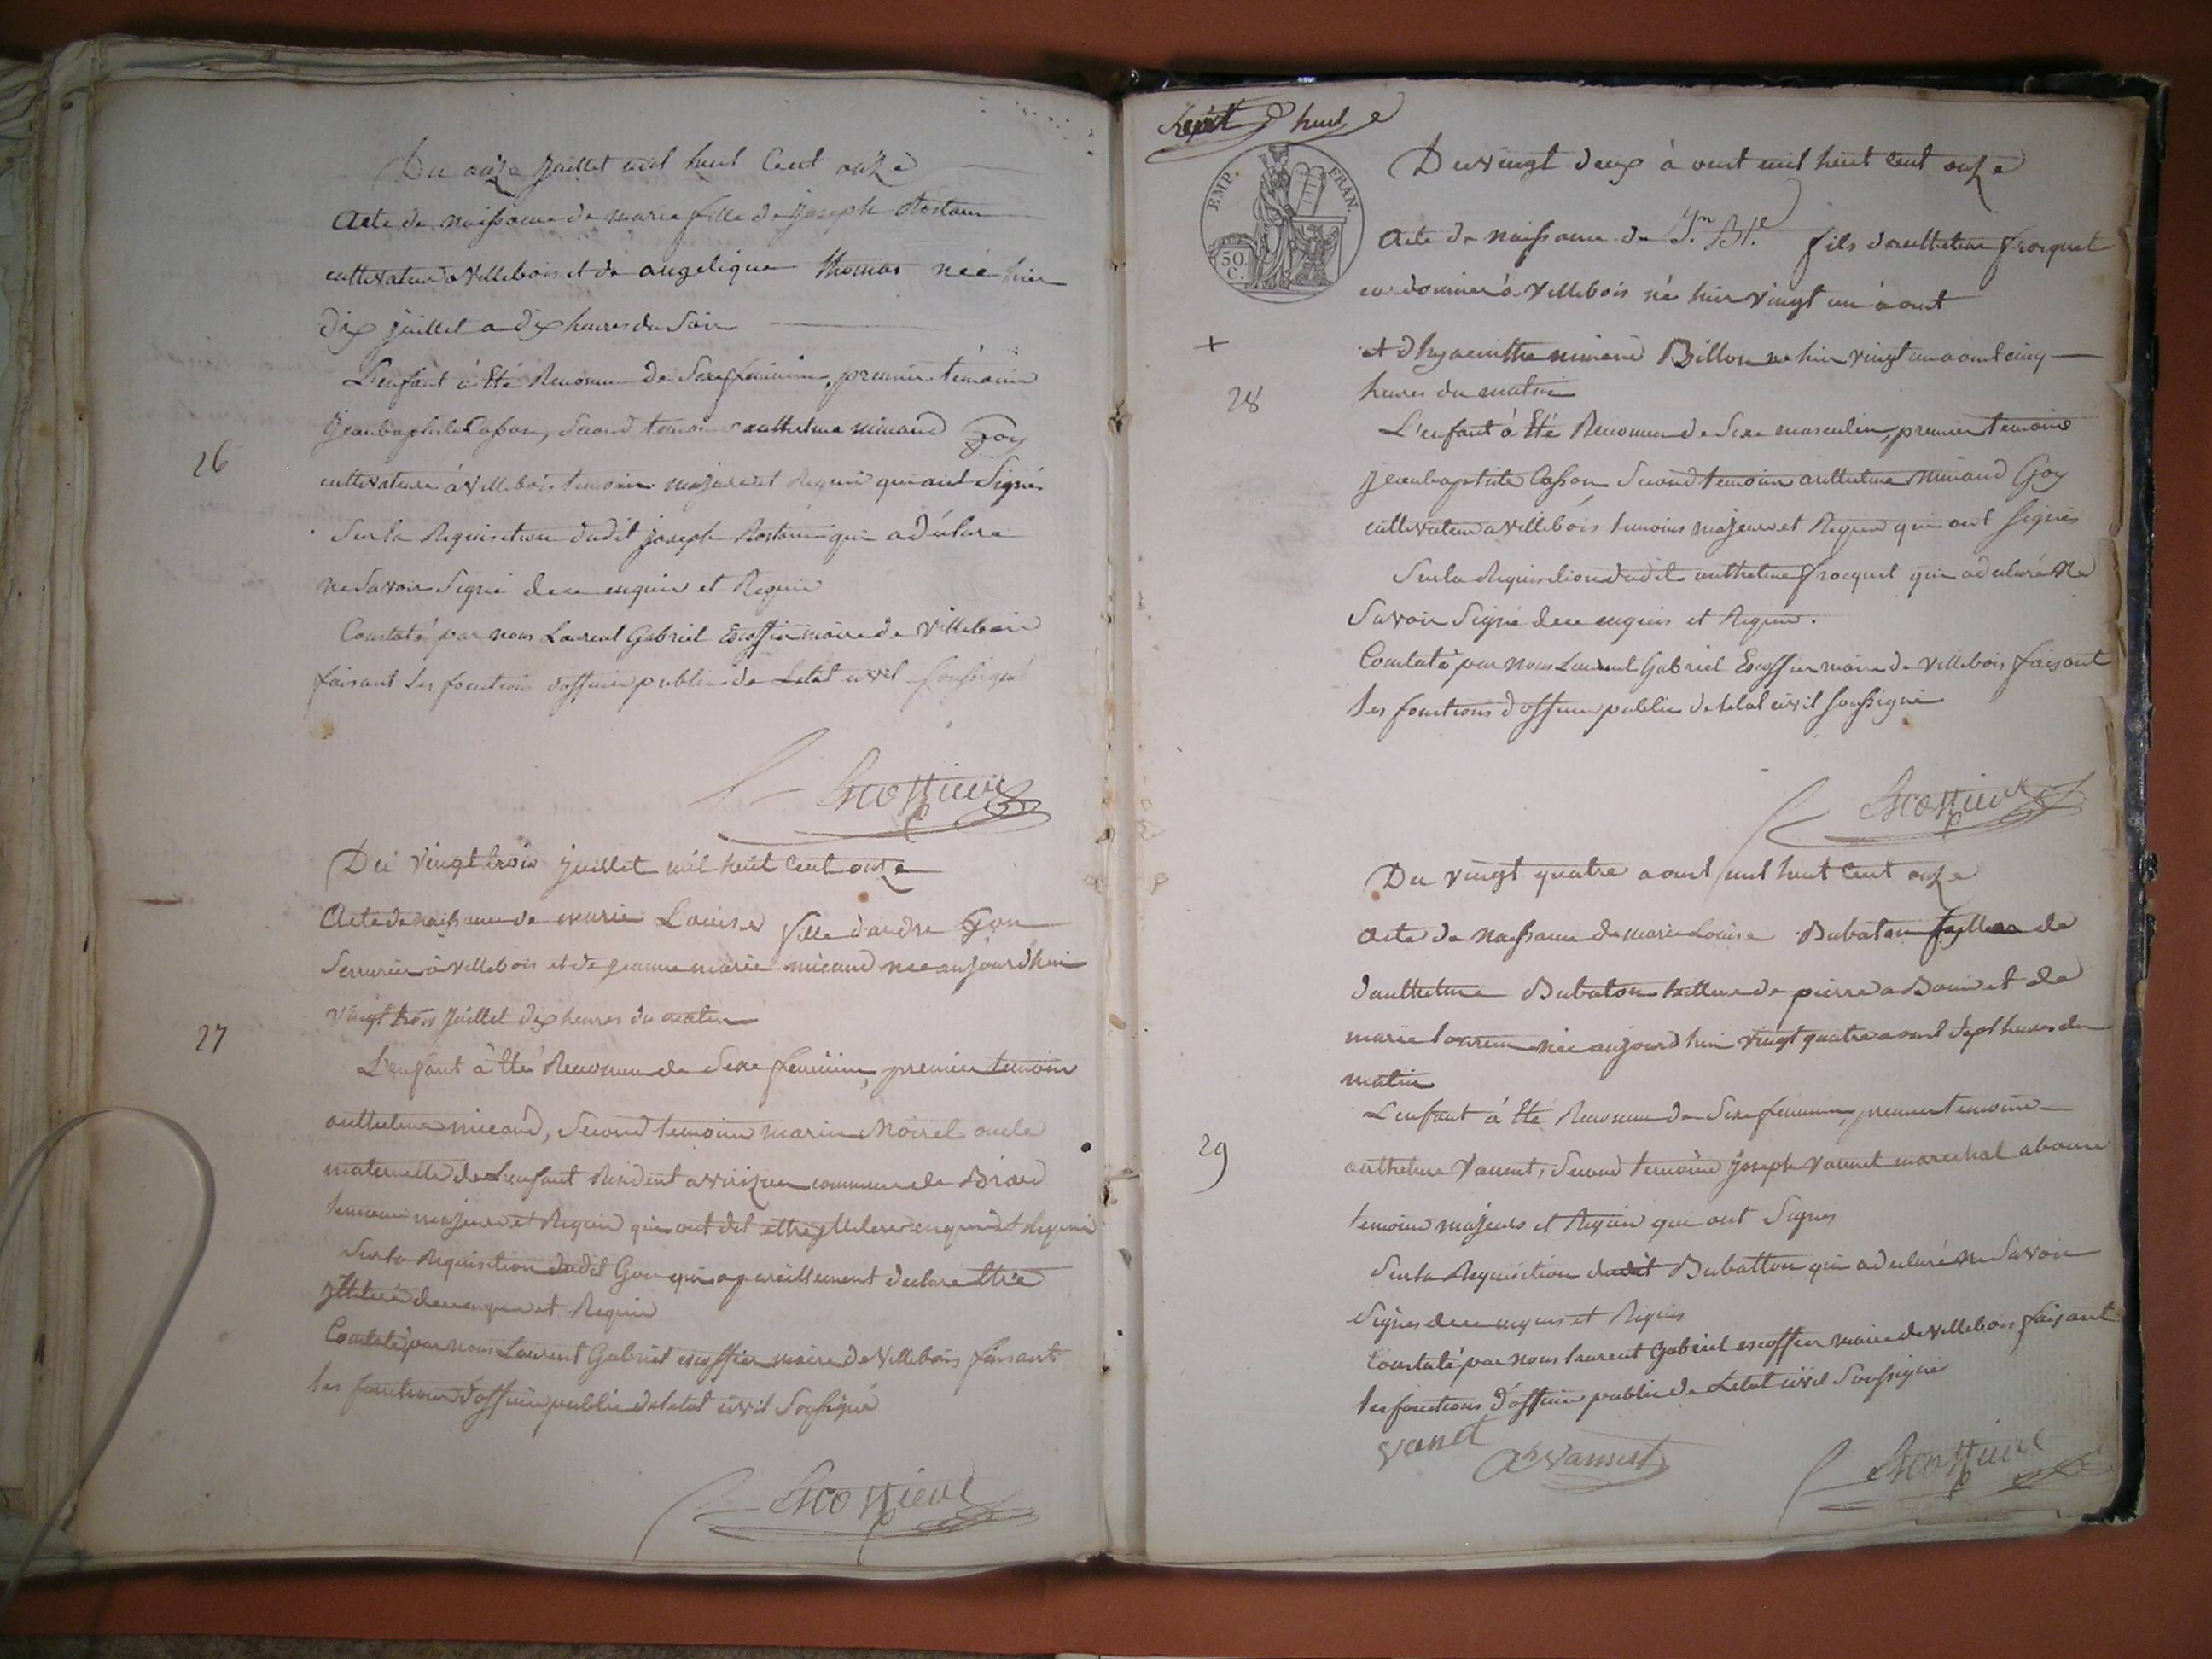 Du onze juillet mil huit Cent onze
Acte de naissance de marie fille de joseph Rostain
cultivateur a villebois et de angelique thomas née hier
dix juillet a dix heures du Soir
L'enfant à Eté Reconnu de Sexe feminin, premier témoin
jeanbaptiste Casson, Second temoin anthelme micand Goy
26
cultivateur à villebois temoins majeurs et Requis qui ont Signés
Sur la Requisition dudit joseph Rostain qui a déclaré
ne Savoir Signé de ce enquis et Requis
Constaté par nous Laurent Gabriel Escoffier maire de villebois
faisant les fonctions d'officier public de Letat civil soussigné
Escoffier
Du vingt trois juillet mil huit Cent onze
Acte de naissance de marie Louise fille dandre Gon
Serrurier à villebois et de jeanne marie micand née aujourdhui
vingt trois juillet dix heures du matin
27
L'enfant à été Reconnu de Sexe feminin, premier temoin
anthelme micand, Second temoin marin Morel oncle
maternelle de Lenfant Résident a commune de Briord
temoins majeurs et Requis qui ont dit ettre jlliteré enquis et Requis
Sur la Requisition dudit Gon qui a pareillement declaré ettre
jlliteré de ce enquis et Requis
Constaté par nous Laurent Gabriel escoffier maire de villebois faisant
les fonctions d'officier public de letat civil Soussigné
Escoffier
huit
EMP. FRAN.
50 C.
Du vingt deux à oust mil huit cent onze
Acte de naissance de Jn. Bte. fils d'anthelme froquet
cordonnier à villebois né hier vingt un à oust
et dhyacinthe micand Billon né hier vingt un aoust cinq
heures du matin
28
L'enfant à Eté Reconnu de Sexe masculin, premier temoin
jeanbaptiste Casson Second temoin anthelme micand Goy
cultivateur a villebois temoins majeurs et Requis qui ont signés
Sur la Requisition dudit anthelme frocquet qui a declaré ne
Savoir Signé de ce enquis et Requis.
Constaté par nous Laurent Gabriel Escoffier maire de villebois faisant
les fonctions d'officier public de letat civil soussigné
Escoffier
Du vingt quatre aoust mil huit Cent onze
Acte de naissance de marie Louise Dubaton de
danthelme Dubaton de pierre a Bouis et de
marie née aujourdhui vingt quatre aoust sept heures du
matin
L'enfant à Eté Reconnu de Sexe feminin, premier temoin
29
anthelme Vannet, Second temoins joseph vannet marechal a bouis
temoins majeurs et Requis qui ont Signés
Sur la Requisition dudit Dubatton qui a declaré ne Savoir
Signer de ce enquis et Requis
Constaté par nous laurent Gabriel escoffier maire de villebois faisant
les fonctions d'officier public de Letat civil Soussigné
Vanet An Vannet
Escoffier